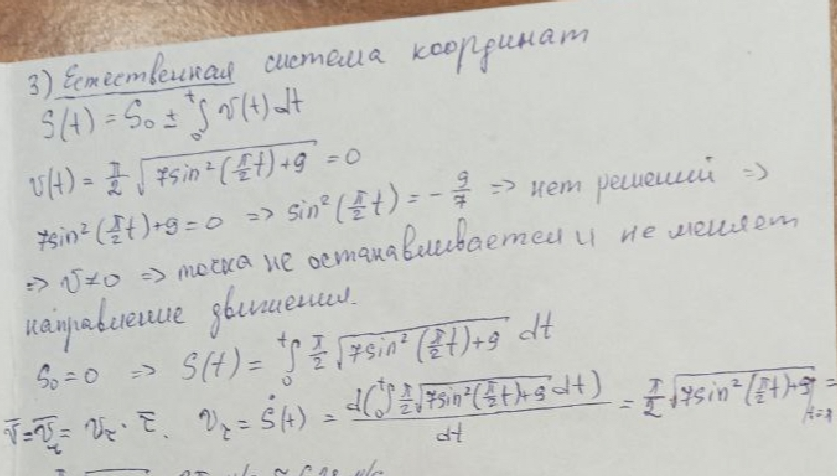 3) Естественная система координат
S(t) = S₀ ± ₀∫ᵗ v(t) dt
v(t) = π/2 √(7sin²(π/2 t)+9) = 0
7sin²(π/2 t)+9=0 => sin²(π/2 t) = - 9/7 => нет решений =>
=> v≠0 => точка не останавливается и не меняет
направление движения.
S₀=0 => S(t) = ₀∫ᵗ π/2 √(7sin²(π/2 t)+9) dt
v̄ = v̄_τ = v_τ · τ̄. v_τ = Ṡ(t) = d(₀∫ᵗ π/2 √(7sin²(π/2 t)+9) dt)/dt = π/2 √(7sin²(π/2 t)+9) =